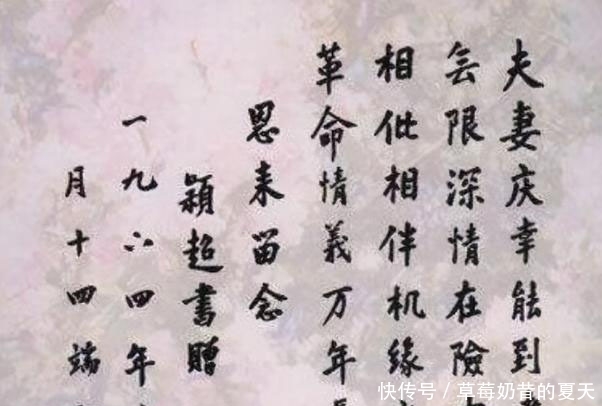 夫妻庆幸能到
无限深情在險
相伴相伴机缘
革命情義万年
恩来留念
穎超書贈
一九六四年
月十四端
快传号/草莓奶昔的夏天